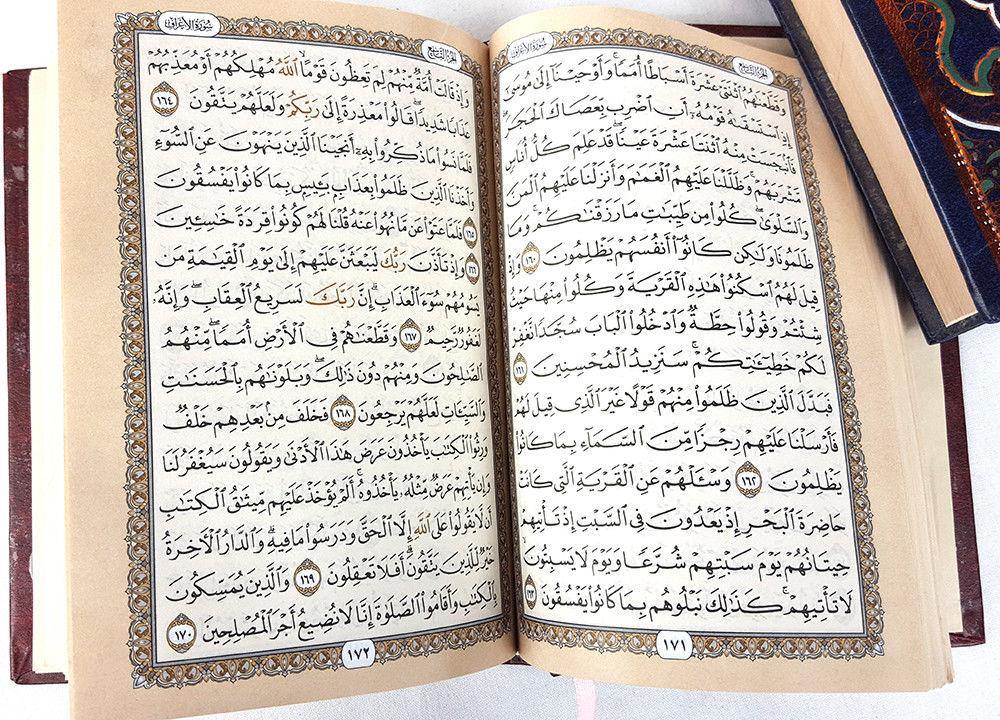 الجزء التاسع
سورة الأعراف
وَقَطَّعْنَٰهُمُ ٱثْنَتَىْ عَشْرَةَ أَسْبَاطًا أُمَمًا ۚ وَأَوْحَيْنَآ إِلَىٰ مُوسَىٰٓ
إِذِ ٱسْتَسْقَىٰهُ قَوْمُهُۥٓ أَنِ ٱضْرِب بِّعَصَاكَ ٱلْحَجَرَ ۖ
فَٱنۢبَجَسَتْ مِنْهُ ٱثْنَتَا عَشْرَةَ عَيْنًا ۖ قَدْ عَلِمَ كُلُّ أُنَاسٍ
مَّشْرَبَهُمْ ۚ وَظَلَّلْنَا عَلَيْهِمُ ٱلْغَمَٰمَ وَأَنزَلْنَا عَلَيْهِمُ ٱلْمَنَّ
وَٱلسَّلْوَىٰ ۖ كُلُوا۟ مِن طَيِّبَٰتِ مَا رَزَقْنَٰكُمْ ۚ وَمَا
ظَلَمُونَا وَلَٰكِن كَانُوٓا۟ أَنفُسَهُمْ يَظْلِمُونَ ١٦٠ وَإِذْ
قِيلَ لَهُمُ ٱسْكُنُوا۟ هَٰذِهِ ٱلْقَرْيَةَ وَكُلُوا۟ مِنْهَا حَيْثُ
شِئْتُمْ وَقُولُوا۟ حِطَّةٌ وَٱدْخُلُوا۟ ٱلْبَابَ سُجَّدًا نَّغْفِرْ
لَكُمْ خَطِيٓـَٰٔتِكُمْ ۚ سَنَزِيدُ ٱلْمُحْسِنِينَ ١٦١
فَبَدَّلَ ٱلَّذِينَ ظَلَمُوا۟ مِنْهُمْ قَوْلًا غَيْرَ ٱلَّذِى قِيلَ لَهُمْ
فَأَرْسَلْنَا عَلَيْهِمْ رِجْزًا مِّنَ ٱلسَّمَآءِ بِمَا كَانُوا۟
يَظْلِمُونَ ١٦٢ وَسْـَٔلْهُمْ عَنِ ٱلْقَرْيَةِ ٱلَّتِى كَانَتْ
حَاضِرَةَ ٱلْبَحْرِ إِذْ يَعْدُونَ فِى ٱلسَّبْتِ إِذْ تَأْتِيهِمْ
حِيتَانُهُمْ يَوْمَ سَبْتِهِمْ شُرَّعًا وَيَوْمَ لَا يَسْبِتُونَ ۙ
لَا تَأْتِيهِمْ ۚ كَذَٰلِكَ نَبْلُوهُم بِمَا كَانُوا۟ يَفْسُقُونَ ١٦٣
١٧١
الجزء التاسع
سورة الأعراف
وَإِذْ قَالَتْ أُمَّةٌ مِّنْهُمْ لِمَ تَعِظُونَ قَوْمًا ۙ ٱللَّهُ مُهْلِكُهُمْ أَوْ مُعَذِّبُهُمْ
عَذَابًا شَدِيدًا ۖ قَالُوا۟ مَعْذِرَةً إِلَىٰ رَبِّكُمْ وَلَعَلَّهُمْ يَتَّقُونَ ١٦٤
فَلَمَّا نَسُوا۟ مَا ذُكِّرُوا۟ بِهِۦٓ أَنجَيْنَا ٱلَّذِينَ يَنْهَوْنَ عَنِ ٱلسُّوٓءِ
وَأَخَذْنَا ٱلَّذِينَ ظَلَمُوا۟ بِعَذَابٍۭ بَـِٔيسٍۭ بِمَا كَانُوا۟ يَفْسُقُونَ
١٦٥ فَلَمَّا عَتَوْا۟ عَن مَّا نُهُوا۟ عَنْهُ قُلْنَا لَهُمْ كُونُوا۟ قِرَدَةً خَٰسِـِٔينَ
١٦٦ وَإِذْ تَأَذَّنَ رَبُّكَ لَيَبْعَثَنَّ عَلَيْهِمْ إِلَىٰ يَوْمِ ٱلْقِيَٰمَةِ مَن
يَسُومُهُمْ سُوٓءَ ٱلْعَذَابِ ۗ إِنَّ رَبَّكَ لَسَرِيعُ ٱلْعِقَابِ ۖ وَإِنَّهُۥ
لَغَفُورٌ رَّحِيمٌ ١٦٧ وَقَطَّعْنَٰهُمْ فِى ٱلْأَرْضِ أُمَمًا ۖ مِّنْهُمُ
ٱلصَّٰلِحُونَ وَمِنْهُمْ دُونَ ذَٰلِكَ ۖ وَبَلَوْنَٰهُم بِٱلْحَسَنَٰتِ
وَٱلسَّيِّـَٔاتِ لَعَلَّهُمْ يَرْجِعُونَ ١٦٨ فَخَلَفَ مِنۢ بَعْدِهِمْ خَلْفٌ
وَرِثُوا۟ ٱلْكِتَٰبَ يَأْخُذُونَ عَرَضَ هَٰذَا ٱلْأَدْنَىٰ وَيَقُولُونَ سَيُغْفَرُ لَنَا
وَإِن يَأْتِهِمْ عَرَضٌ مِّثْلُهُۥ يَأْخُذُوهُ ۚ أَلَمْ يُؤْخَذْ عَلَيْهِم مِّيثَٰقُ ٱلْكِتَٰبِ
أَن لَّا يَقُولُوا۟ عَلَى ٱللَّهِ إِلَّا ٱلْحَقَّ وَدَرَسُوا۟ مَا فِيهِ ۗ وَٱلدَّارُ ٱلْـَٔاخِرَةُ
خَيْرٌ لِّلَّذِينَ يَتَّقُونَ ۗ أَفَلَا تَعْقِلُونَ ١٦٩ وَٱلَّذِينَ يُمَسِّكُونَ
بِٱلْكِتَٰبِ وَأَقَامُوا۟ ٱلصَّلَوٰةَ إِنَّا لَا نُضِيعُ أَجْرَ ٱلْمُصْلِحِينَ ١٧٠
١٧٢